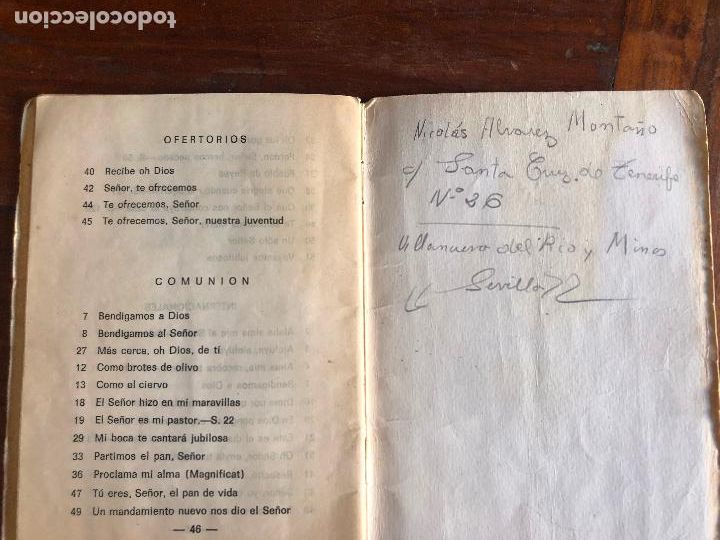 todocoleccion
OFERTORIOS
40 Recibe oh Dios
42 Señor, te ofrecemos
44 Te ofrecemos, Señor
45 Te ofrecemos, Señor, nuestra juventud
COMUNION
7 Bendigamos a Dios
8 Bendigamos al Señor
27 Más cerca, oh Dios, de tí
12 Como brotes de olivo
13 Como el ciervo
18 El Señor hizo en mí maravillas
19 El Señor es mi pastor.—S. 22
29 Mi boca te cantará jubilosa
33 Partimos el pan, Señor
36 Proclama mi alma (Magnificat)
47 Tú eres, Señor, el pan de vida
49 Un mandamiento nuevo nos dio el Señor
— 46 —
Nicolás Alvarez Montaño
c/ Santa Cruz de Tenerife
Nº 36
Villanueva del Rio y Minas
Sevilla